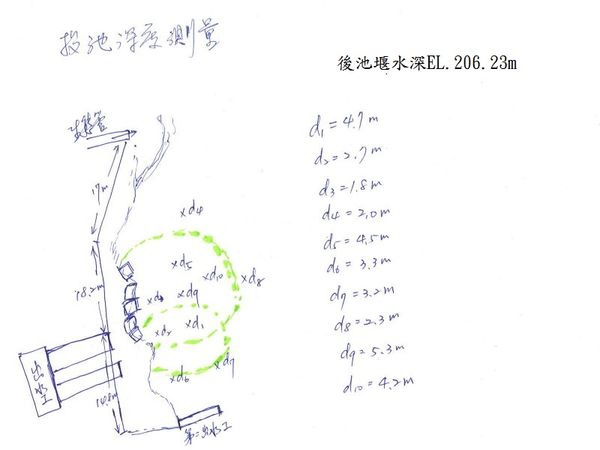 後池深度測量
後池堰水深EL.206.23m
d₁=4.7m
d₂=2.7m
d₃=1.8m
d₄=2.0m
d₅=4.5m
d₆=3.3m
d₇=3.2m
d₈=2.3m
d₉=5.3m
d₁₀=4.2m
17m
xd₄
xd₅
xd₁₀
xd₈
18.2m
xd₃
xd₉
xd₂
xd₁
出水工
xd₆
xd₇
14.8m
第二出水工